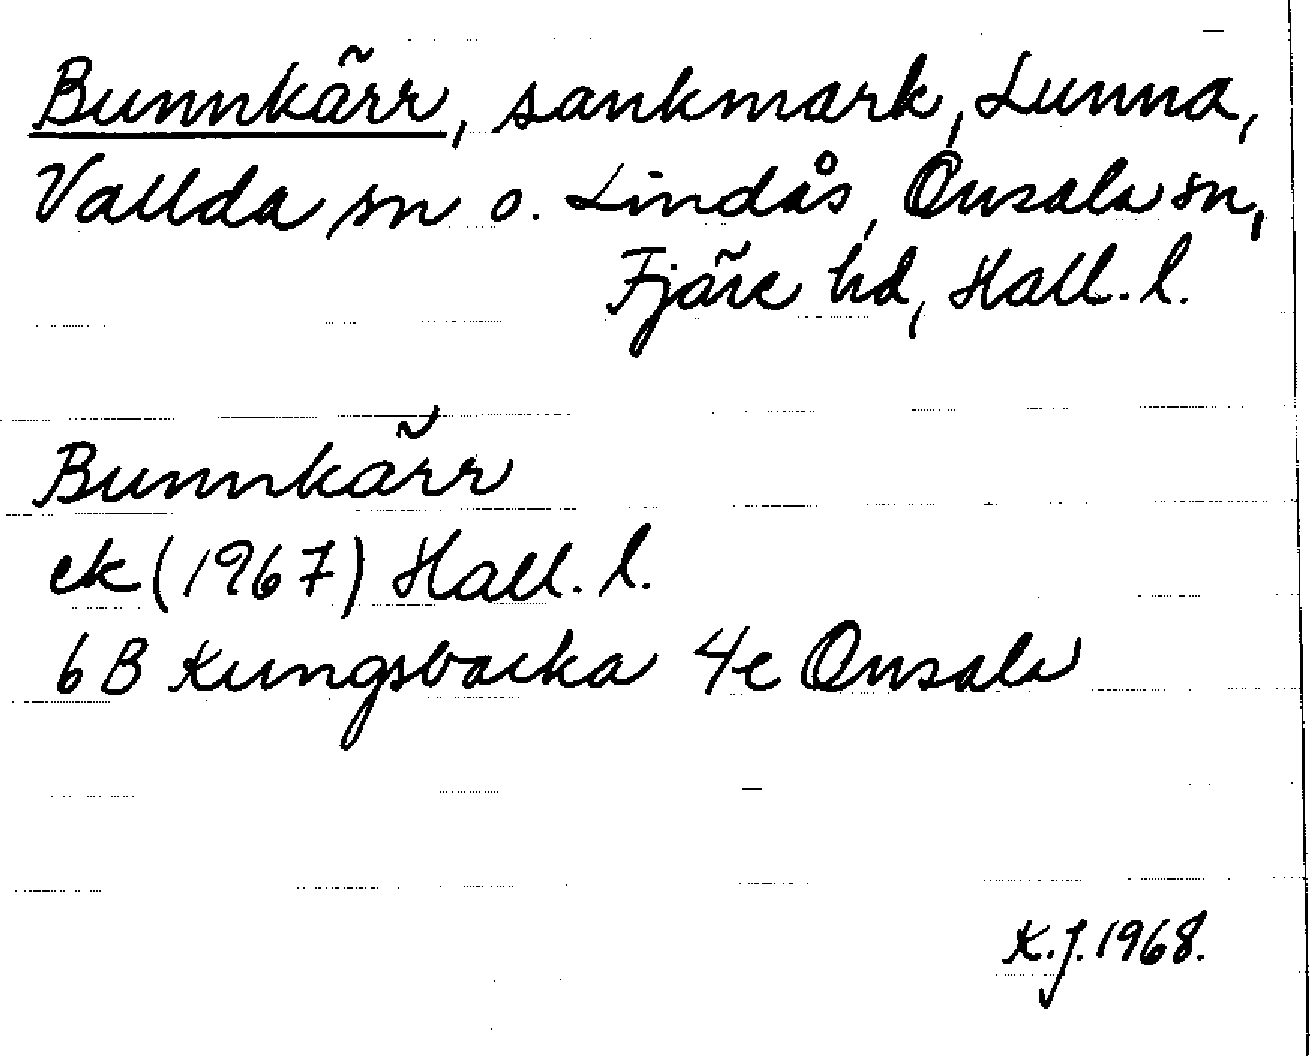 Bunnkärr, sankmark, Lunna,
Vallda sn o. Lindås, Onsala sn,
Fjäre hd, Hall. l.
Bunnkärr
ek (1967) Hall. l.
6 B Kungsbacka 4e Onsala
K.J. 1968.